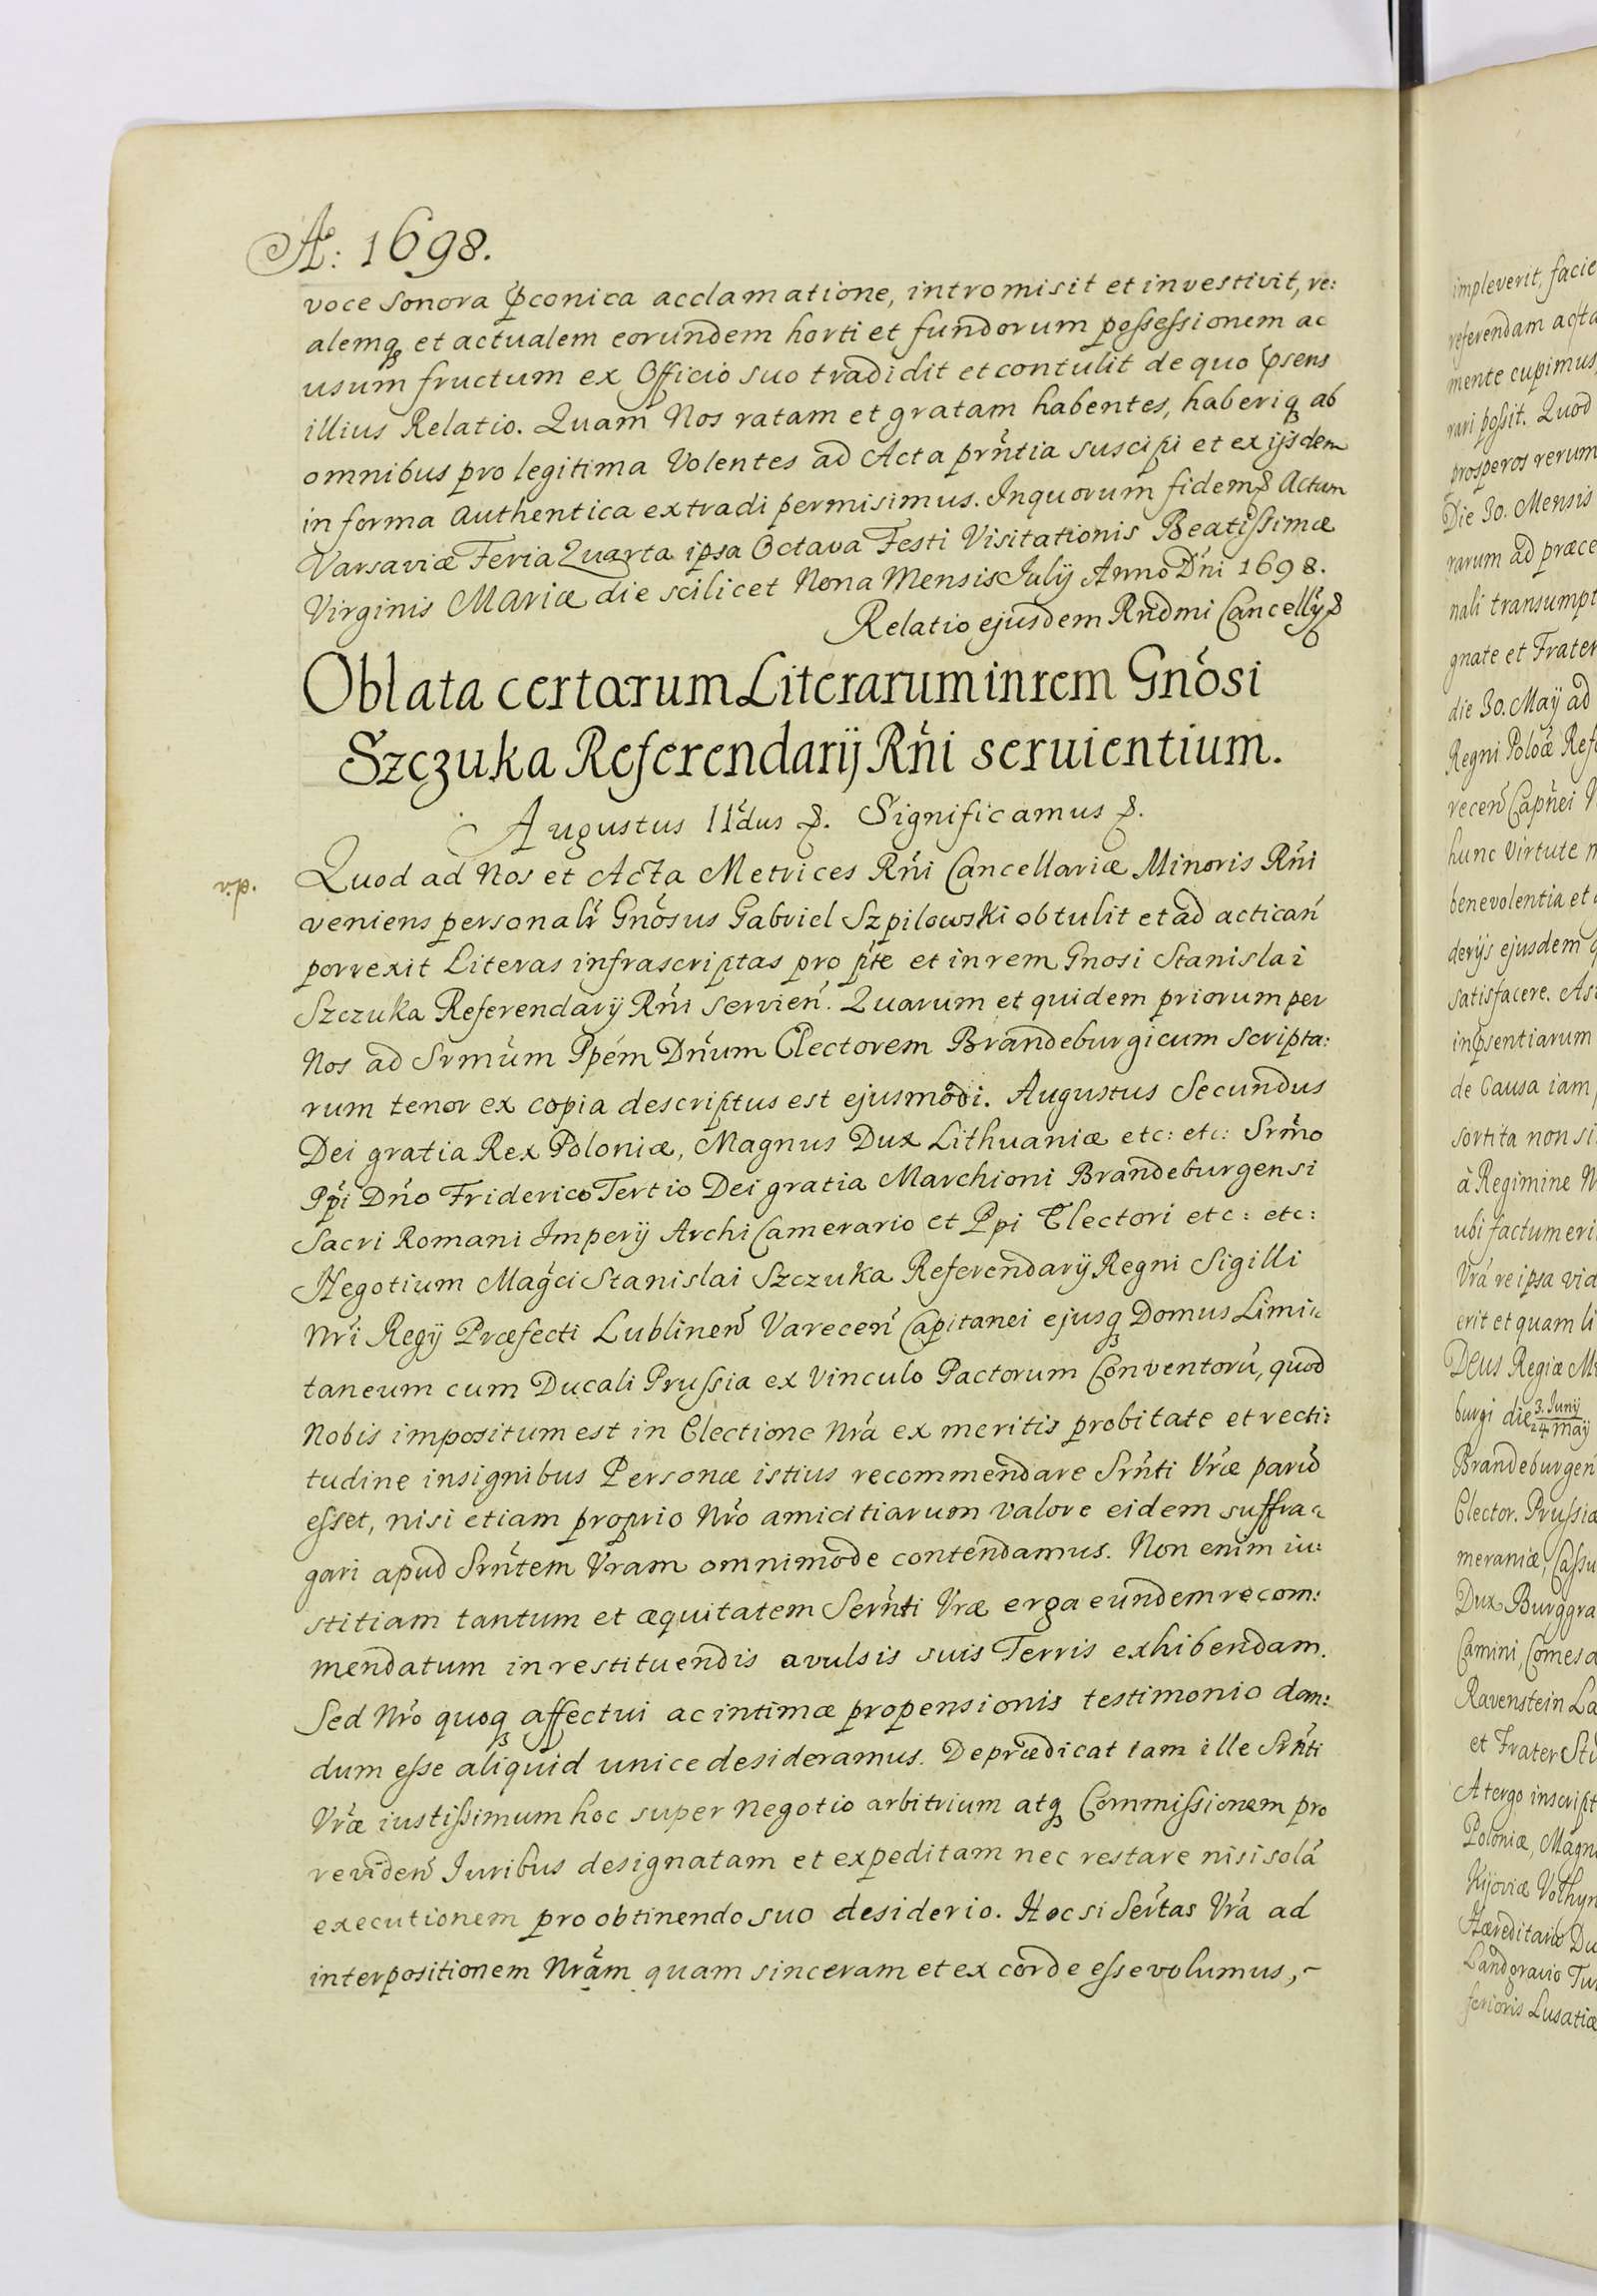 Ao: 1698.
voce sonora p̃conica acclamatione, intromisit et investivit, re:
alemq3 et actualem eorundem horti et fundorum possessionem ac
usum fructum ex Officio suo tradidit et contulit de quo p̃sens
illius Relatio. Quam Nos ratam et gratam habentes, haberiq3 ab
omnibus pro legitima Volentes ad Acta prñtia suscipi et ex ijsdem
in forma authentica extradi permisimus. In quorum fidem Actum
Varsaviæ Feria Quarta ipsa Octava Festi Visitationis Beatissimæ
Virginis Mariæ die scilicet Nona Mensis Julij Anno Dñi 1698.
Relatio ejusdem Rñdmi Cancellÿ
Oblata certarum Literarum in rem Gnõsi
Szczuka Referendarij Rñi seruientium.
Augustus IIdus &. Significamus &.
v.p.
Quod ad Nos et Acta Metrices Rñi Cancellariæ Minoris Rñi
veniens personalr̃ Gnõsus Gabriel Szpilowski obtulit et ad actican̄
porrexit Literas infrascriptas pro pt̃e et in rem Gnosi Stanislai
Szczuka Referendarij Rñi servien̄. Quarum et quidem priorum per
Nos ad Srmũm Ppém Dnũm Electorem Brandeburgicum scripta:
rum tenor ex copia descriptus est ejusmodi. Augustus Secundus
Dei gratia Rex Poloniæ, Magnus Dux Lithuaniæ etc: etc: Srm̃o
Pp̃i Dño Friderico Tertio Dei gratia Marchioni Brandeburgensi
Sacri Romani Imperij Archi Camerario et Ppi Electori etc: etc:
Negotium Magc̃i Stanislai Szczuka Referendarij Regni Sigilli
Nrĩ Regij Præfecti Lublinen̄ Varecen̄ Capitanei ejusq3 Domus Limi:
taneum cum Ducali Prussia ex Vinculo Pactorum Conventorũ, quod
Nobis impositum est in Electione Nrã ex meritis probitate et recti:
tudine insignibus Personæ istius recommendare Srñti Vrǣ parũ
esset, nisi etiam proprio Nrõ amicitiarum valore eidem suffra:
gari apud Srñtem Vram omnimode contendamus. Non enim iu:
stitiam tantum et æquitatem Serñti Vræ erga eundem recom:
mendatum in restituendis avulsis suis Terris exhibendam.
Sed Nrõ quoq3 affectui ac intimæ propensionis testimonio dan:
dum esse aliquid unice desideramus. Deprædicat iam ille Srñti
Vrǣ iustissimum hoc super negotio arbitrium atq3 Commissionem pro
reviden̄ Iuribus designatam et expeditam nec restare nisi solã
executionem pro obtinendo suo desiderio. Hoc si Sert̃as Vrã ad
interpositionem Nrãm quam sinceram et ex corde esse volumus,
impleverit, facie
referendam acta
mente cupimus,
rari possit. Quod
prosperos rerum
Die 30. Mensis
rarum ad præce
nali transumpt
gnate et Frater
die 30. Maij ad
Regni Poloæ Ref
recen̄ Capnei V
hunc Virtute
benevolentia et
derijs ejusdem
satisfacere. As
in p̃sentiarum
de Causa iam
sortita non si
à Regimine N
ubi factum eri
Vrã re ipsa vid
erit et quam li
Deus Regiæ M
burgi die 3. Junij / 24. Maij
Brandeburgen
Elector. Prussiæ
meraniæ, Cassu
Dux Burggra
Camini, Comes
Ravenstein La
et Frater St
A tergo inscript
Poloniæ, Magn
Kijoviæ Volhyn
Hæreditario Du
Landgravio Tu
ferioris Lusatiæ